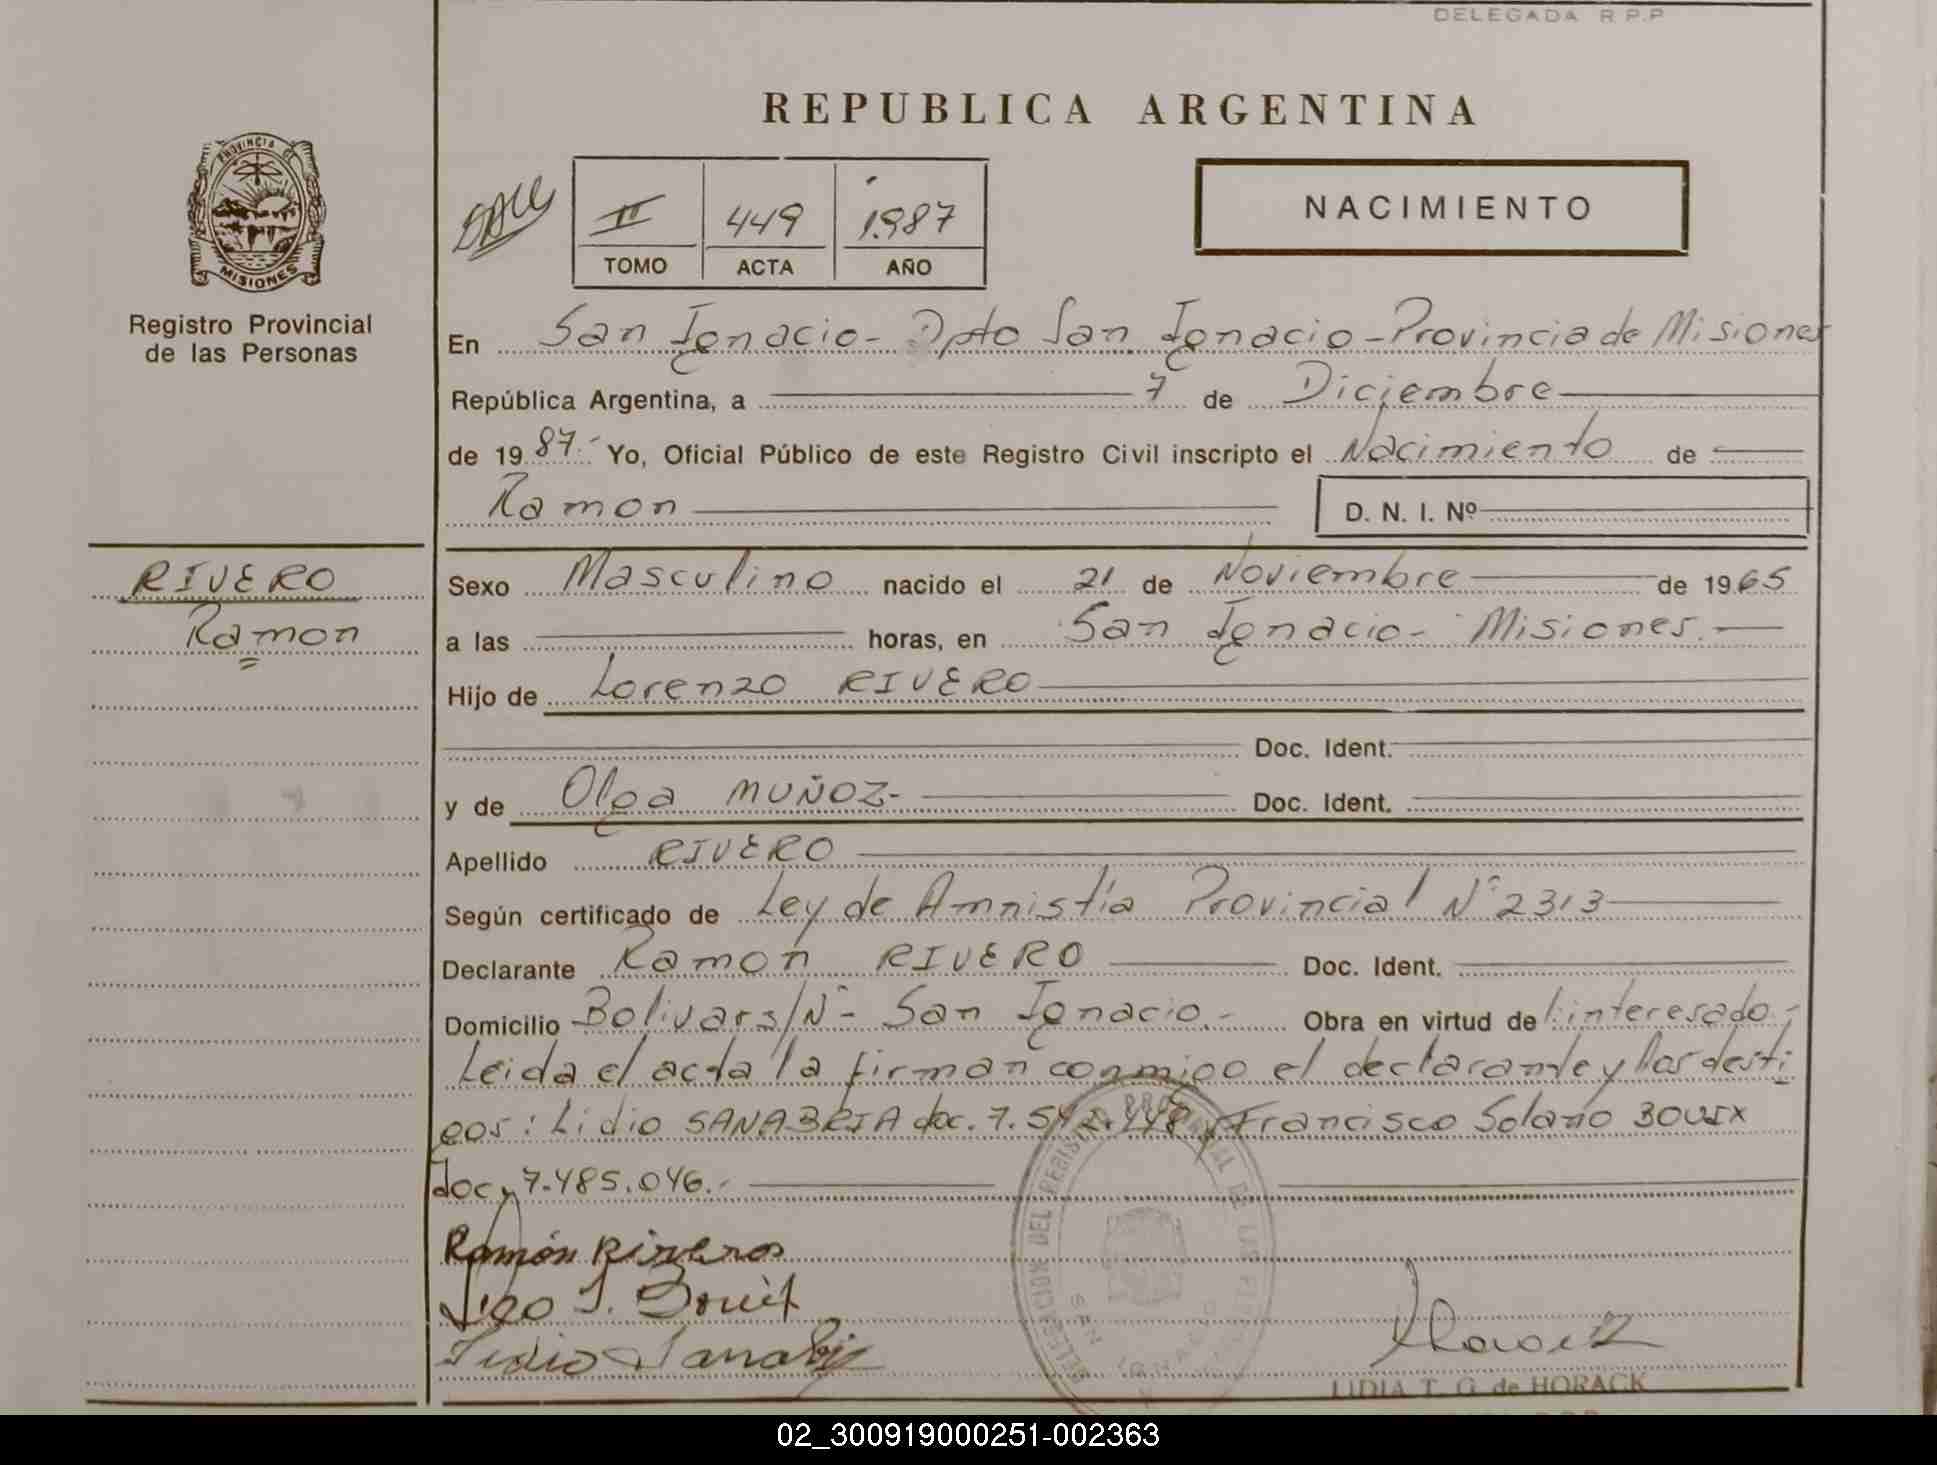 DELEGADA R.P.P
REPUBLICA ARGENTINA
PROVINCIA DE
MISIONES
Registro Provincial
de las Personas
II 449 1.987
TOMO ACTA AÑO
NACIMIENTO
En San Ignacio- Dpto San Ignacio-Provincia de Misiones
República Argentina, a 7 de Diciembre
de 1987.- Yo, Oficial Público de este Registro Civil inscripto el Nacimiento de
Ramon D. N. I. Nº
RIVERO
Ramon
Sexo Masculino nacido el 21 de Noviembre de 1965
a las horas, en San Ignacio- Misiones.
Hijo de Lorenzo RIVERO
Doc. Ident.
y de Olga MUÑOZ- Doc. Ident.
Apellido RIVERO
Según certificado de Ley de Amnistía Provincial N° 2313
Declarante Ramon RIVERO Doc. Ident.
Domicilio Bolivar s/N°- San Ignacio.- Obra en virtud de l:interesado.-
Leida el acta la firman conmigo el declarante y los testi
gos: Lidio SANABRIA doc. 7.542.448 y Francisco Solano BOUIX
doc. 7.485.046.-
DELEGACION DEL REGISTRO PROVINCIAL DE LAS PERSONAS
SAN IGNACIO
Ramón Riveros
Fco S. Bouix
Lidio Sanabria
LIDIA T. G. de HORACK
02_300919000251-002363